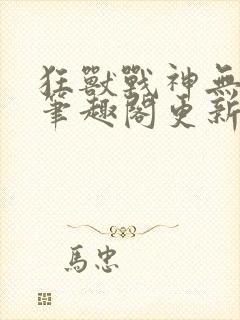 狂獸戰神無
筆趣閣更新
馬忠